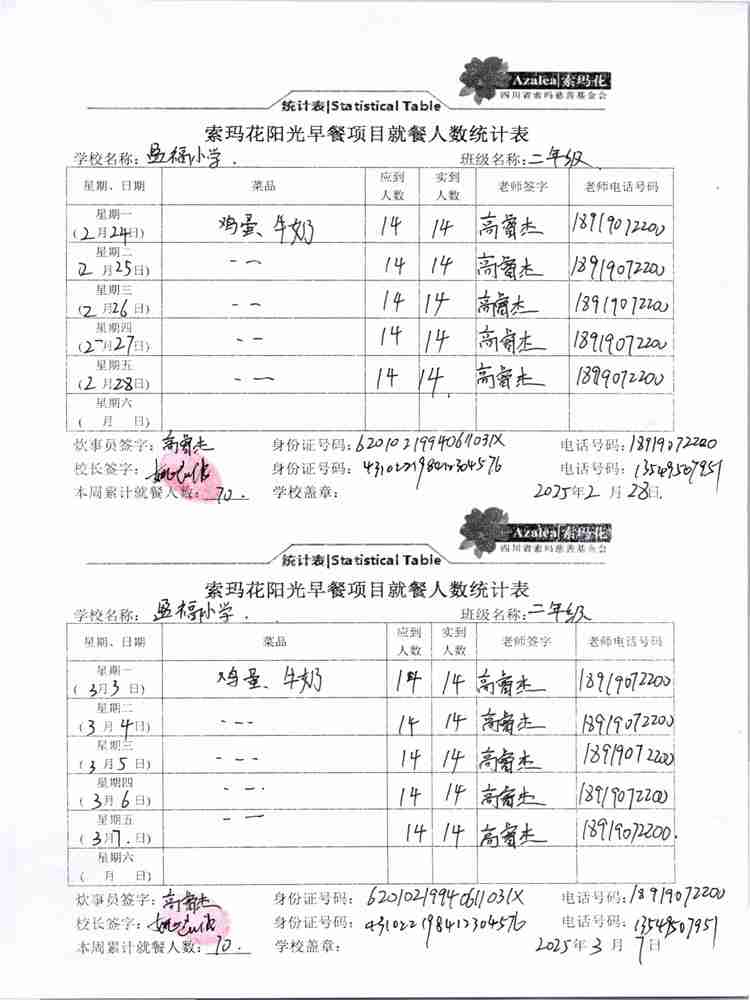 Azalea|索玛花
四川省索玛慈善基金会
统计表|Statistical Table
索玛花阳光早餐项目就餐人数统计表
学校名称：盈福小学. 班级名称：二年级
星期、日期 菜品 应到人数 实到人数 老师签字 老师电话号码
星期一
(2月24日) 鸡蛋、牛奶 14 14 高睿杰 18919072200
星期二
(2月25日) -- 14 14 高睿杰 18919072200
星期三
(2月26日) -- 14 14 高睿杰 18919072200
星期四
(2月27日) -- 14 14 高睿杰 18919072200
星期五
(2月28日) -- 14 14 高睿杰 18919072200
星期六
( 月 日)
炊事员签字：高睿杰 身份证号码：62010219940611031X 电话号码：18919072200
校长签字： 身份证号码：431022198412304576 电话号码：13549507951
本周累计就餐人数：70. 学校盖章： 2025年2月28日
Azalea|索玛花
四川省索玛慈善基金会
统计表|Statistical Table
索玛花阳光早餐项目就餐人数统计表
学校名称：盈福小学. 班级名称：二年级
星期、日期 菜品 应到人数 实到人数 老师签字 老师电话号码
星期一
(3月3日) 鸡蛋、牛奶 14 14 高睿杰 18919072200
星期二
(3月4日) --- 14 14 高睿杰 18919072200
星期三
(3月5日) --- 14 14 高睿杰 18919072200
星期四
(3月6日) -- 14 14 高睿杰 18919072200
星期五
(3月7.日) -- 14 14 高睿杰 18919072200.
星期六
( 月 日)
炊事员签字：高睿杰 身份证号码：62010219940611031X 电话号码：18919072200
校长签字： 身份证号码：431022198412304576 电话号码：13549507951
本周累计就餐人数：70. 学校盖章： 2025年3月7日